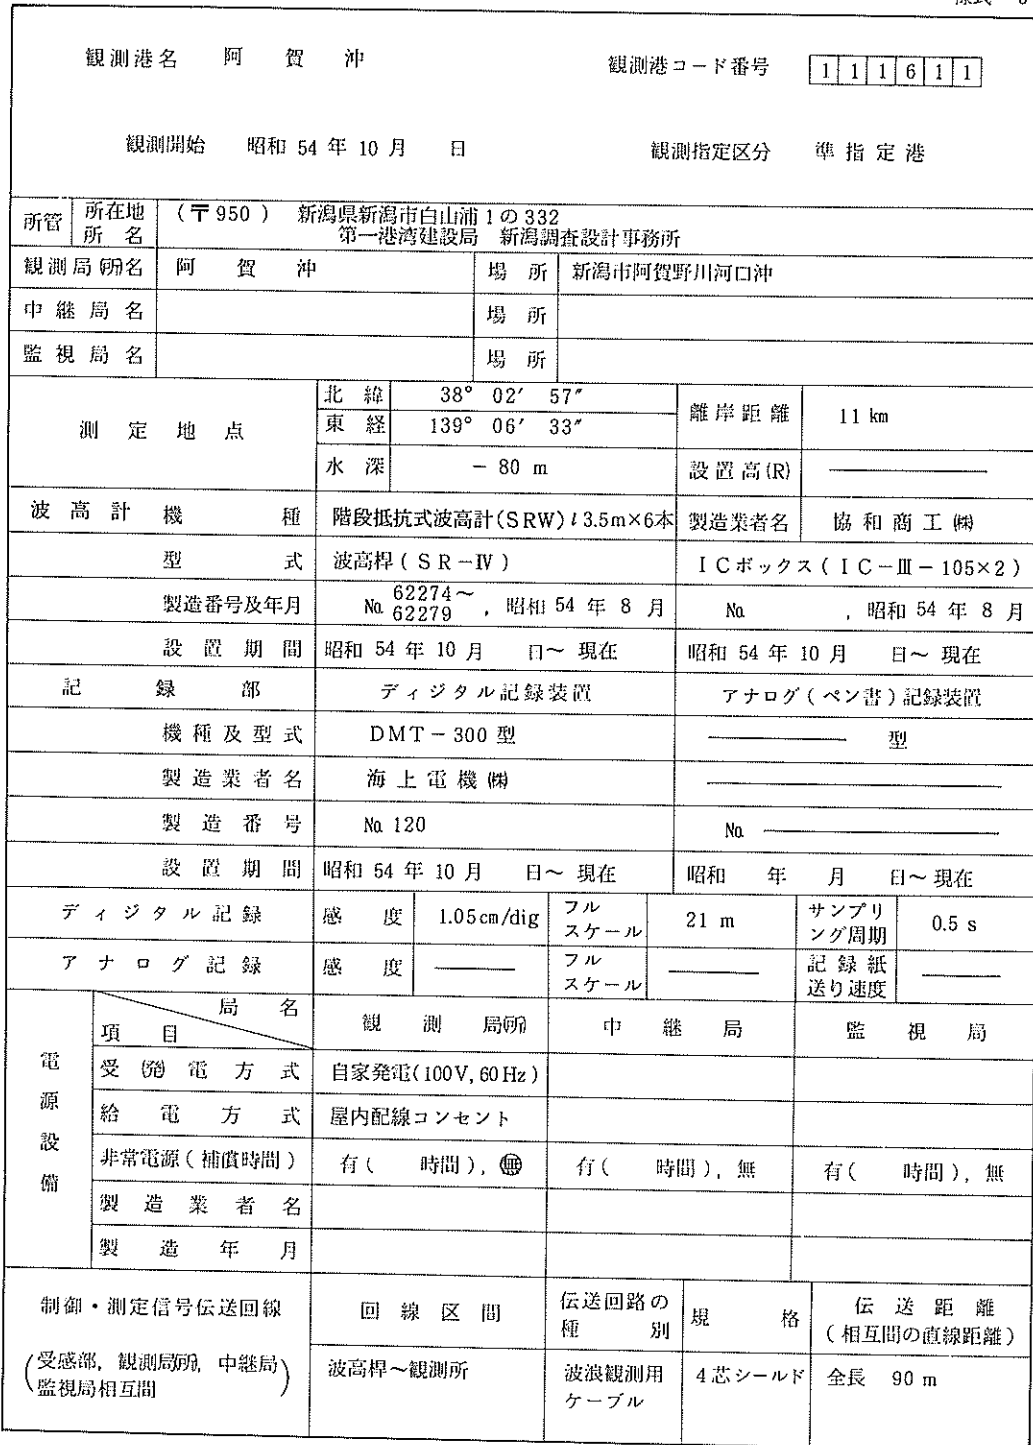 観測港名 阿賀沖 観測港コード番号 111611
観測開始 昭和 54 年 10 月 日 観測指定区分 準指定港
所管 所在地 (〒950) 新潟県新潟市白山浦1の332
所名 第一港湾建設局 新潟調査設計事務所
観測局(所)名 阿賀沖 場所 新潟市阿賀野川河口沖
中継局名 場所
監視局名 場所
測定地点 北緯 38° 02′ 57″ 離岸距離 11 km
東経 139° 06′ 33″
水深 − 80 m 設置高(R) ―
波高計 機種 階段抵抗式波高計(SRW) l 3.5m×6本 製造業者名 協和商工㈱
型式 波高桿(SR−Ⅳ) ICボックス(IC−Ⅲ−105×2)
製造番号及年月 No. 62274~62279 , 昭和 54 年 8 月 No. , 昭和 54 年 8 月
設置期間 昭和 54 年 10 月 日~ 現在 昭和 54 年 10 月 日~ 現在
記録部 ディジタル記録装置 アナログ(ペン書)記録装置
機種及型式 DMT−300 型 ― 型
製造業者名 海上電機㈱ ―
製造番号 No. 120 No. ―
設置期間 昭和 54 年 10 月 日~ 現在 昭和 年 月 日~ 現在
ディジタル記録 感度 1.05cm/dig フルスケール 21 m サンプリング周期 0.5 s
アナログ記録 感度 ― フルスケール ― 記録紙送り速度 ―
電源設備 局名 項目 観測局(所) 中継局 監視局
受(発)電方式 自家発電(100V, 60Hz)
給電方式 屋内配線コンセント
非常電源(補償時間) 有( 時間), 無 有( 時間), 無 有( 時間), 無
製造業者名
製造年月
制御・測定信号伝送回線 回線区間 伝送回路の種別 規格 伝送距離(相互間の直線距離)
(受感部, 観測局(所), 中継局監視局相互間) 波高桿~観測所 波浪観測用ケーブル 4芯シールド 全長 90 m